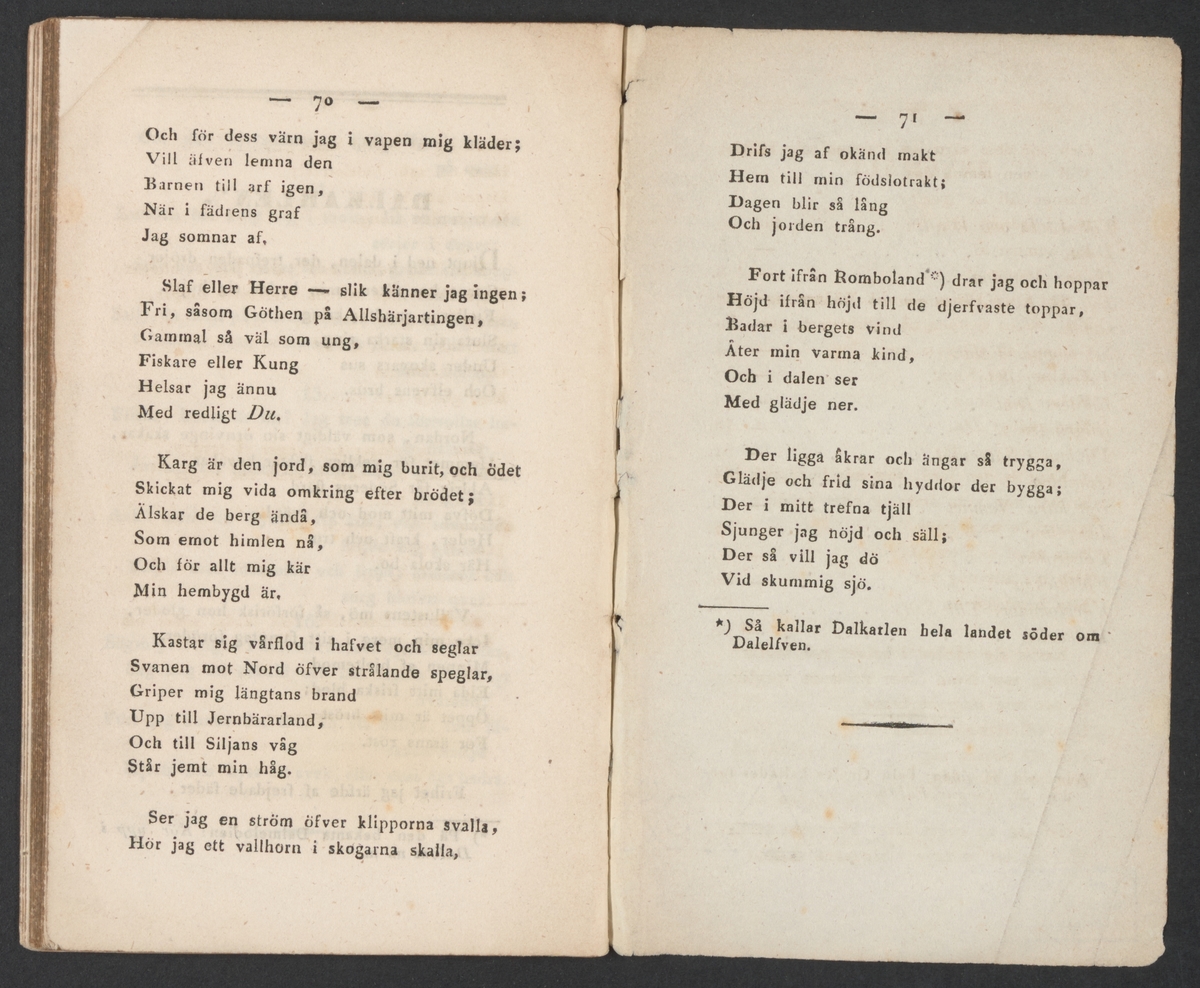 — 70 —
Och för dess värn jag i vapen mig kläder;
Vill äfven lemna den
Barnen till arf igen,
När i fädrens graf
Jag somnar af.
Slaf eller Herre — slik känner jag ingen;
Fri, såsom Göthen på Allshärjartingen,
Gammal så väl som ung,
Fiskare eller Kung
Helsar jag ännu
Med redligt Du.
Karg är den jord, som mig burit, och ödet
Skickat mig vida omkring efter brödet;
Älskar de berg ändå,
Som emot himlen nå,
Och för allt mig kär
Min hembygd är.
Kastar sig vårflod i hafvet och seglar
Svanen mot Nord öfver strålande speglar,
Griper mig längtans brand
Upp till Jernbärarland,
Och till Siljans våg
Står jemt min håg.
Ser jag en ström öfver klipporna svalla,
Hör jag ett vallhorn i skogarna skalla,
— 71 —
Drifs jag af okänd makt
Hem till min födslotrakt;
Dagen blir så lång
Och jorden trång.
Fort ifrån Romboland*) drar jag och hoppar
Höjd ifrån höjd till de djerfvaste toppar,
Badar i bergets vind
Åter min varma kind,
Och i dalen ser
Med glädje ner.
Der ligga åkrar och ängar så trygga,
Glädje och frid sina hyddor der bygga;
Der i mitt trefna tjäll
Sjunger jag nöjd och säll;
Der så vill jag dö
Vid skummig sjö.
*) Så kallar Dalkarlen hela landet söder om
Dalelfven.